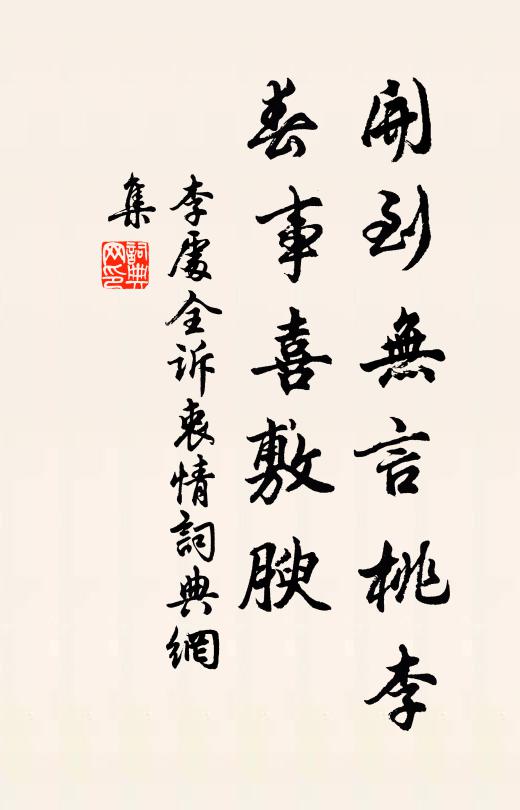 開到無言桃李
春事喜敷腴
李處全訴衷情詞典網
集
詞典網印